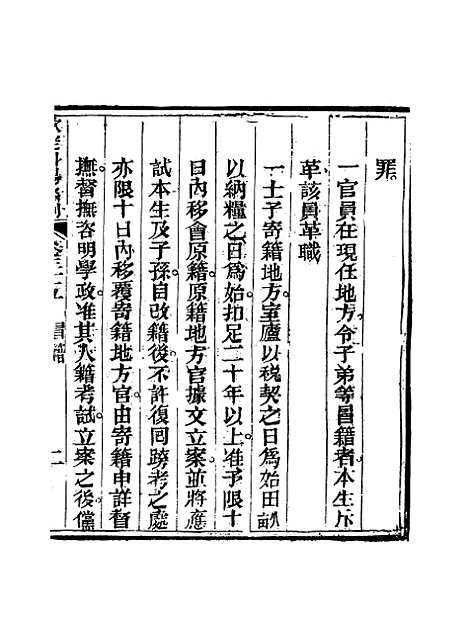 罪
一官員在現任地方令子弟等冒籍者本生斥
革該員革職
一士子寄籍地方室廬以稅契之日爲始田畝
以納糧之日爲始扣足二十年以上准予限十
日內移會原籍原籍地方官據文立案並將應
試本生及子孫自改籍後不許復同跨考之處
亦限十日內移覆寄籍地方官由寄籍申詳督
撫督撫咨明學政准其入籍考試立案之後儻
欽定科場條例 卷三十五 冒籍 二